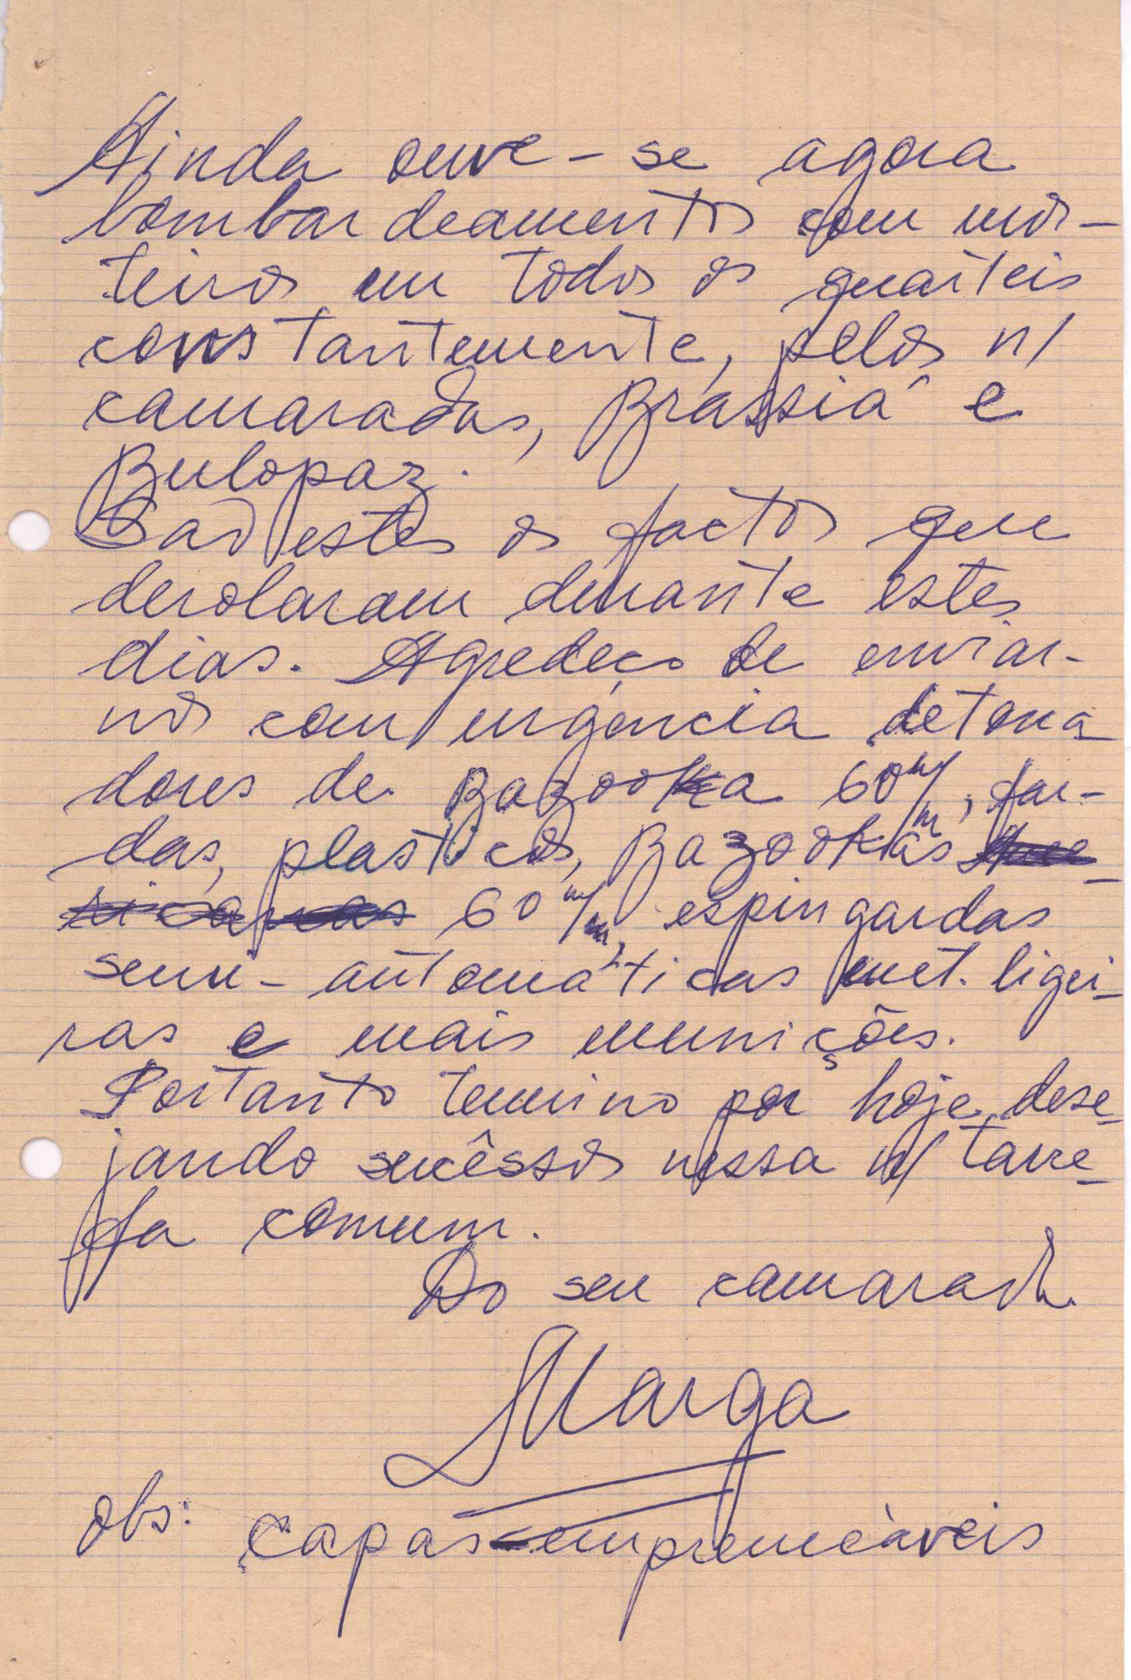 Ainda ouve-se agora
bombardeamentos com mor-
teiros em todos os quarteis
constantemente, pelos n/
camaradas, Brassiá e
Bulopaz.
Sao estes os factos que
derolaram durante estes
dias. Agredeço de enviar-
nos com urgência detona
dores de Bazooka 60 m/m, far-
das, plasticos, Bazookas
60 m/m, espingardas
semi-automáticas met. ligei-
ras e mais munições.
Portanto termino por hoje, dese-
jando sucêssos nessa n/ tare-
fa comum.
Do seu camarada
Marga
obs: capas